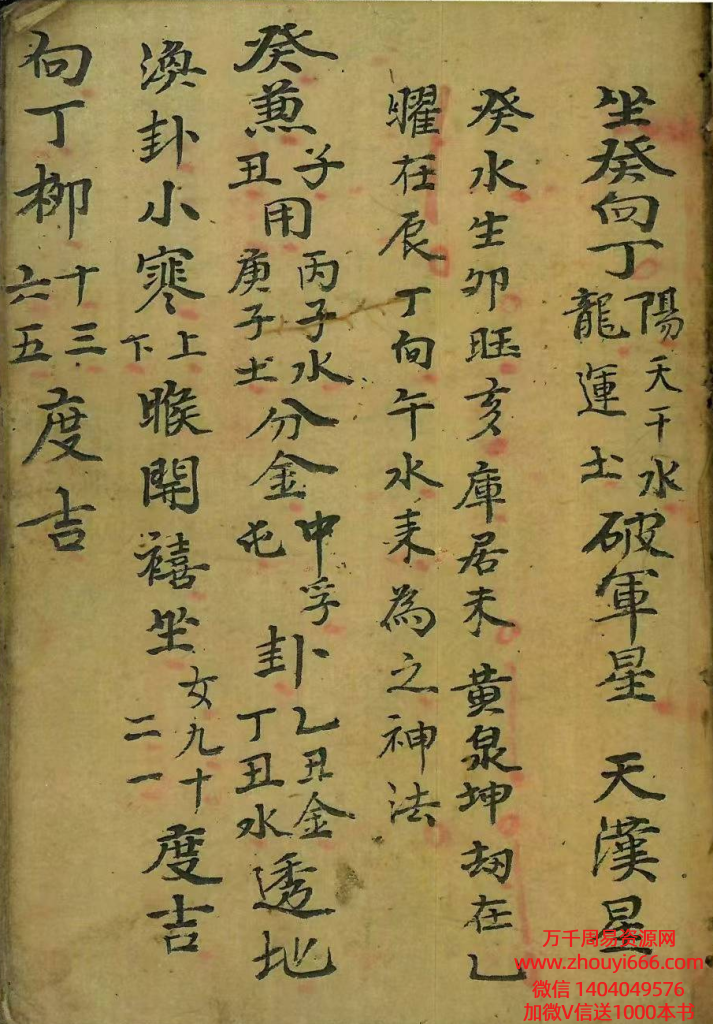 坐癸向丁陽天干水龍運土破軍星 天漢星
癸水生卯旺亥庫居未黄泉坤劫在乙
曜在辰丁向午水耒為之神法
癸兼子丑用丙子水庚子土分金中孚屯卦乙丑金丁丑水透地
渙卦小寒上下㬋開禧坐女九十二一度吉
向丁柳十三六五度吉
万千周易资源网
www.zhouyi666.com
微信 1404049576
加微V信送1000本书